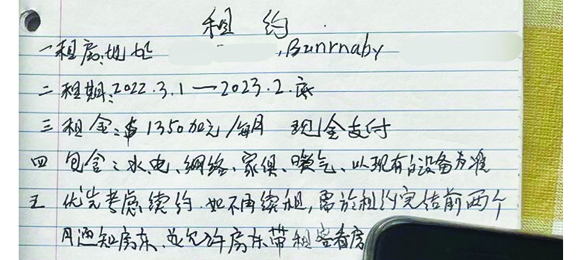 租约
一租房地址 , Bunrnaby
二租期：2022.3.1—2023.2.底
三租金：$1350加元/每月 现金支付
四包含：水电、网络、家俱、暖气、以现有的设备为准
五优先考虑续约 如不再续租，需於租约完结前两个
月通知房东，並允许房东带租客看房